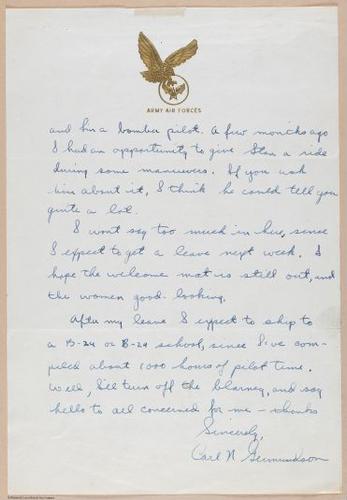 ARMY AIR FORCES
and his a bomber pilot. A few months ago
I had an opportunity to give Stan a ride
during some maneuvers. If you ask
him about it, I think he could tell you
quite a lot.
I wont say too much in here, since
I expect to get a leave next week. I
hope the welcome mat is still out, and
the women good-looking.
After my leave I expect to ship to
a B-24 or B-29 school, since I've com-
piled about 1000 hours of pilot time.
Well, I'll turn off the blarney, and say
hello to all concerned for me - thanks
Sincerely,
Carl N. Germundson